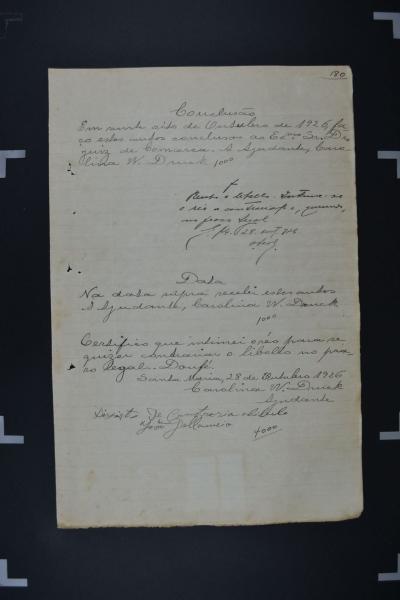 180
Conclusão
Em vinte oito de Outubro de 1926, fa
ço estes autos conclusos ao Exmo Sr. Dr.
juiz de Comarca. A Ajudante, Caro
lina W. Druck 1000
o libello. Intime-se
o réo a contrariar-o, querendo,
no prazo legal
28
Data
Na data supra recebi estes autos
A Ajudante, Carolina W. Druck
1000
Certifico que intimei o réo para se
quizer contrariar o libello no pra
zo legal. Doufé.
Santa Maria, 28 de Outubro 1926
Carolina W. Druck
Ajudante
de
João
4000